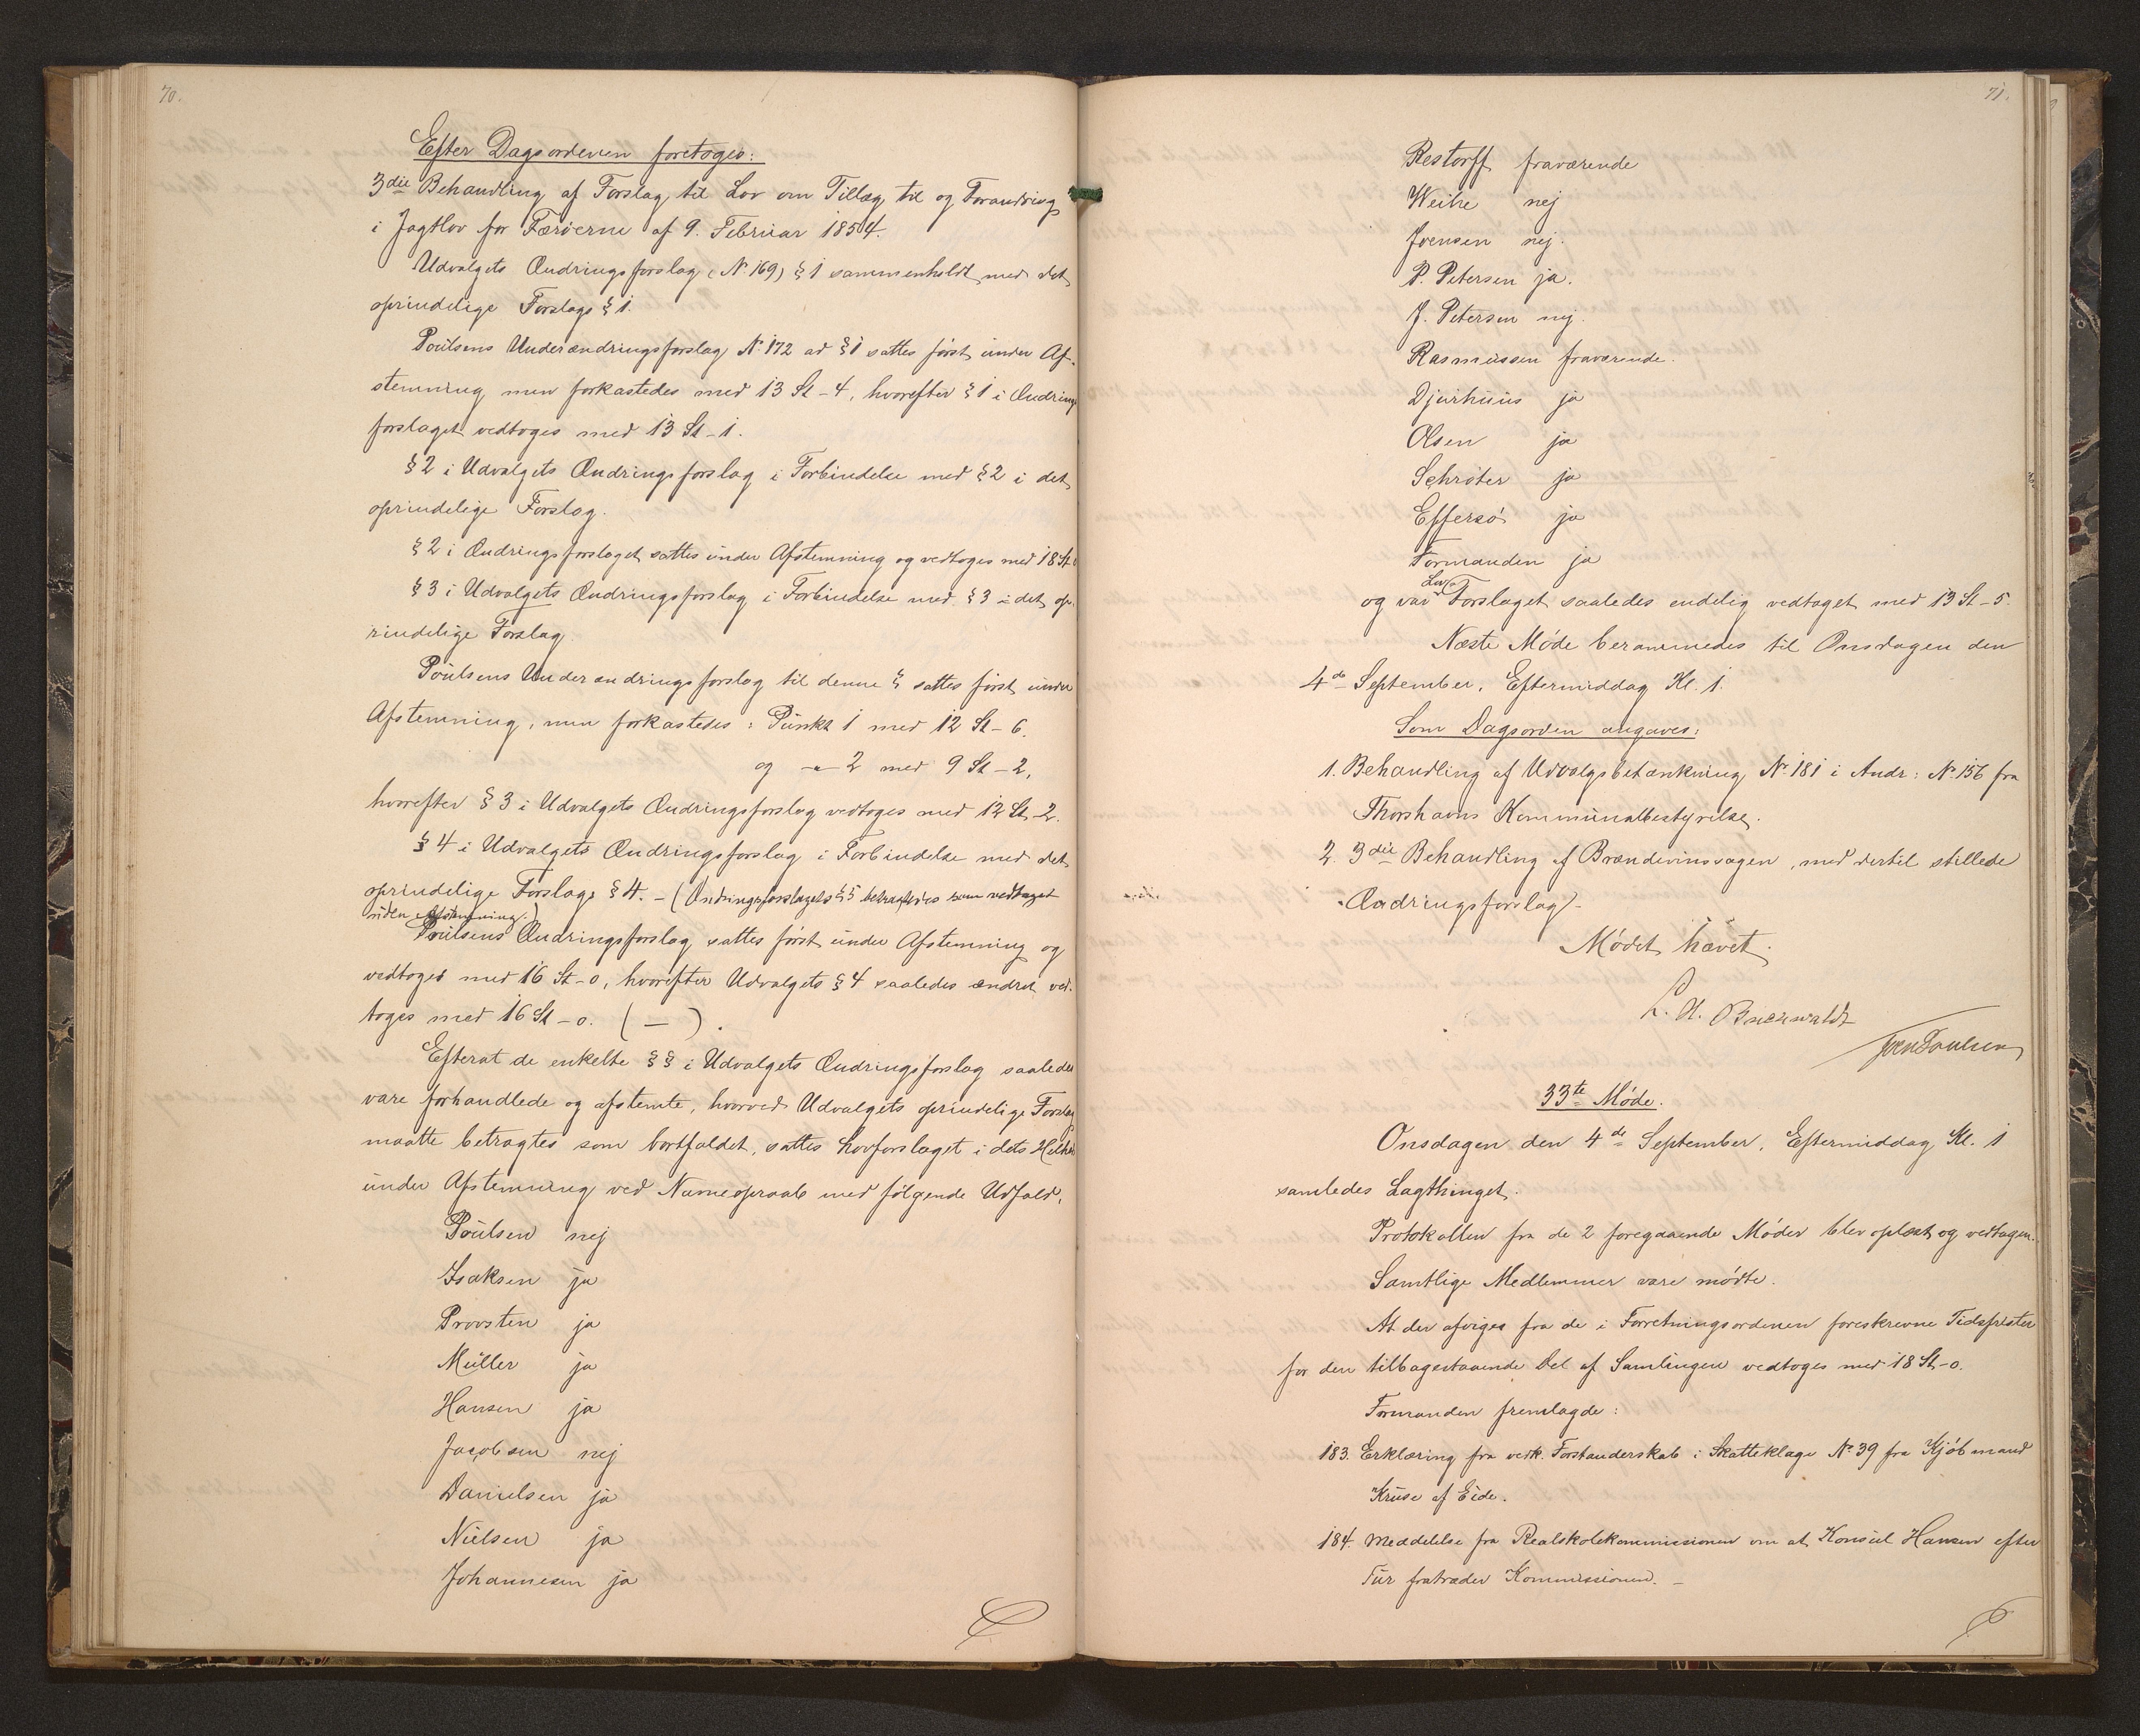 70.
Efter Dagsordenen foretoges:
3die Behandling af Forslag til Lov om Tillæg til og Forandring
i Jagtlov for Færøerne af 9. Februar 1854.
Udvalgets Ændringsforslag (No 169) § 1 sammenholdt med det
oprindelige Forslags § 1.
Poulsens Underændringsforslag No 172 ad § 1 sattes først under Af-
stemning, men forkastedes med 13 St - 4, hvorefter § 1 i Ændrings
forslaget vedtoges med 13 St - 1.
§ 2 i Udvalgets Ændringsforslag i Forbindelse med § 2 i det
oprindelige Forslag.
§ 2 i Ændringsforslaget sattes under Afstemning og vedtoges med 18 St
§ 3 i Udvalgets Ændringsforslag i Forbindelse med § 3 i det op-
rindelige Forslag.
Poulsens Underændringsforslag til denne § sattes først under
Afstemning, men forkastedes: Punkt 1 med 12 St - 6.
og -"- 2 med 9 St - 2,
hvorefter § 3 i Udvalgets Ændringsforslag vedtoges med 12 St - 2.
§ 4 i Udvalgets Ændringsforslag i Forbindelse med det
oprindelige Forslags § 4. - (Ændringsforslagets § 5 betragtedes som vedtaget
uden Afstemning.)
Poulsens Ændringsforslag sattes først under Afstemning og
vedtoges med 16 St - 0, hvorefter Udvalgets § 4 saaledes ændret ved-
toges med 16 St - 0. ( — ).
Efterat de enkelte § § i Udvalgets Ændringsforslag saaledes
vare forhandlede og afstemte, hvorved Udvalgets oprindelige Forslag
maatte betragtes som bortfaldet, sattes Lovforslaget i dets Helhed
under Afstemning ved Navneopraab med følgende Udfald,
Poulsen nej
Isaksen ja
Provsten ja
Müller ja
Hansen ja
Jacobsen nej
Danielsen ja
Nielsen ja
Johannesen ja
71.
Restorff fraværende
Weihe nej
Joensen nej.
P. Petersen ja.
J. Petersen nej.
Rasmussen fraværende.
Djurhuus ja
Olsen ja
Schrøter ja
Effersø ja
Formanden ja
Lov
og var Forslaget saaledes endelig vedtaget med 13 St - 5.
Næste Møde berammedes til Onsdagen den
4de September, Eftermiddag Kl. 1.
Som Dagsorden angaves:
1. Behandling af Udvalgsbetænkning No 181 i Andr: No 156 fra
Thorshavns Kommunalbestyrelse.
2. 3die Behandling af Brændevinssagen, med dertil stillede
Ændringsforslag.
Mødet hævet.
33te Møde.
Onsdagen den 4de September, Eftermiddag Kl. 1
samledes Lagthinget.
Protokollen fra de 2 foregaaende Møder blev oplæst og vedtagen.
Samtlige Medlemmer vare mødte.
At der afviges fra de i Forretningsordenen foreskrevne Tidsfrister
for den tilbagestaaende Del af Samlingen vedtoges med 18 St - 0.
Formanden fremlagde:
183. Erklæring fra vedk. Forstanderskab i Skatteklage No 39 fra Kjøbmand
Kruse af Eide.
184. Meddelelse fra Realskolekommissionen om at Konsul Hansen efter
Tur fratræder Kommissionen. -